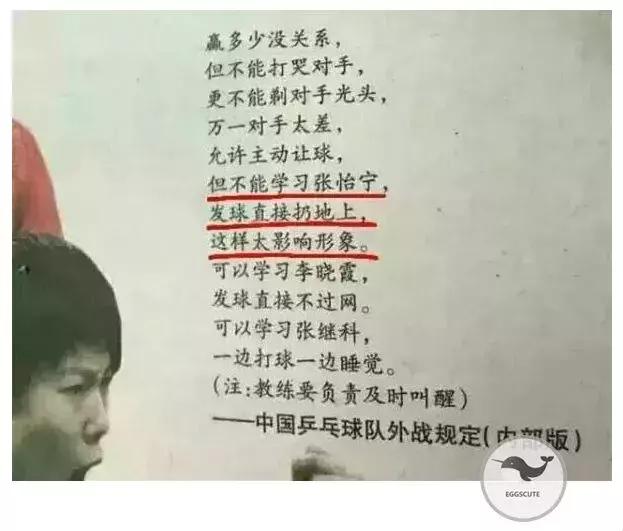 赢多少没关系，
但不能打哭对手，
更不能剃对手光头，
万一对手太差，
允许主动让球，
但不能学习张怡宁，
发球直接扔地上，
这样太影响形象。
可以学习李晓霞，
发球直接不过网。
可以学习张继科，
一边打球一边睡觉。
(注：教练要负责及时叫醒)
——中国乒乓球队外战规定(内部版)
EGGSCUTE